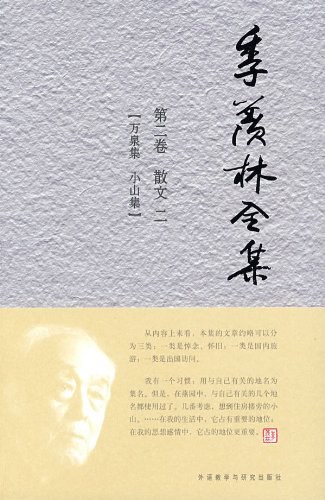 季羡林全集
第二卷 散文 二
【万泉集 小山集】
从内容上来看，本集的文章约略可以分
为三类：一类是悼念、怀旧；一类是国内旅
游；一类是出国访问。
我有一个习惯：用与自己有关的地名为
集名。但是，在燕园中，与我有关的几个地
名都使用过了。几番考虑，想到住房楼旁的小
山。——在我的生活中，它占有重要的地位；
在我的思想感情中，它占的地位更重要。
外语教学与研究出版社